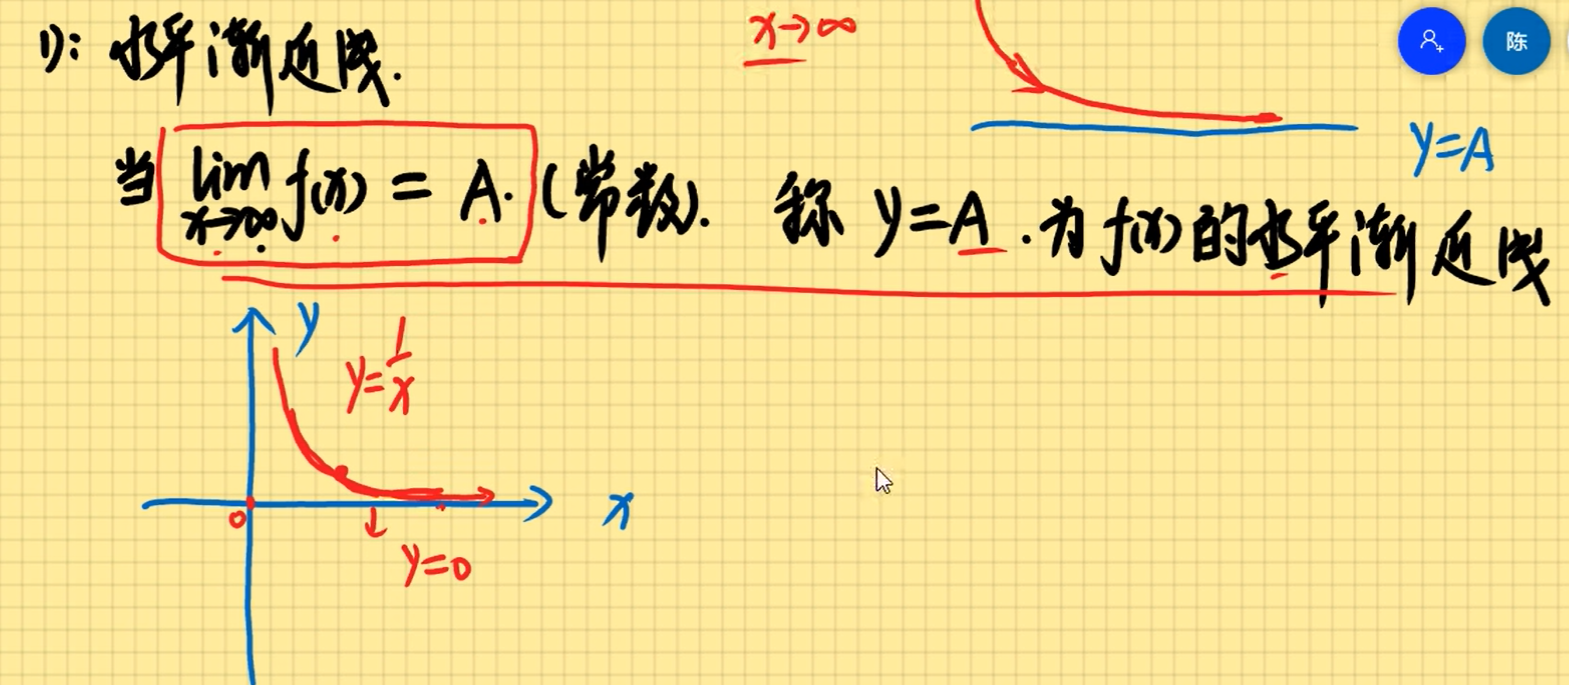 1): 水平渐近线.
x→∞
陈
y=A
当 lim x→∞ f(x) = A. (常数). 称 y=A. 为 f(x) 的水平渐近线
y
y=1/x
x
0
y=0